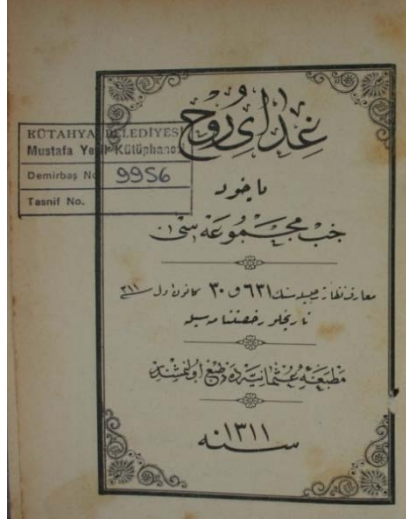 غدای روح
KÜTAHYA BELEDİYESİ
Mustafa Yeşil Kütüphanesi
Demirbaş No. 9956
Tasnif No.
یاخود
جب مجموعه سی
معارف نظارت جلیله سنك ٦٣١ و ٣٠ كانون اول سنه ٣١١
تاریخلو رخصتنامه سیله
مطبعهٔ عثمانیه ده طبع اولنمشدر
سنه ١٣١١